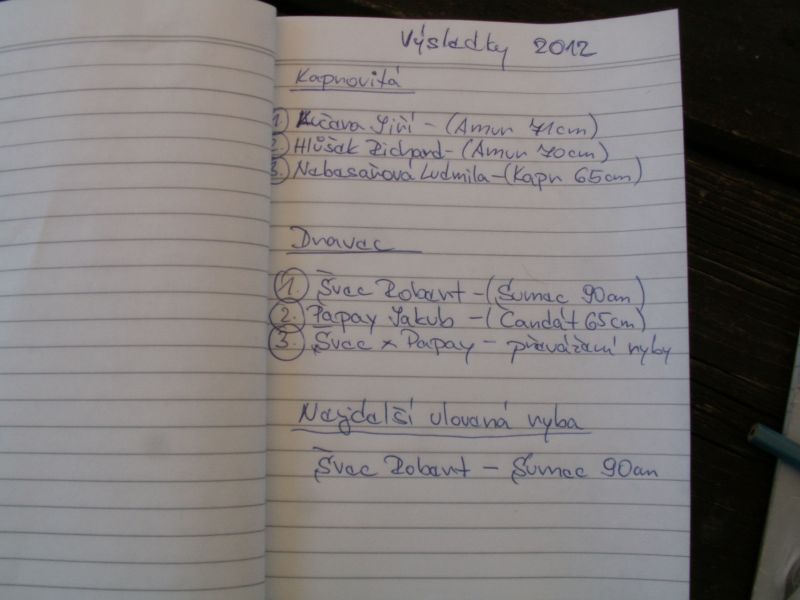 Výsledky 2012
Kaprovitá
1. Kučava Jiří - (Amur 71cm)
2. Hlůšek Richard - (Amur 70cm)
3. Nebesařová Ludmila - (Kapr 65cm)
Dravec
1. Švec Robert - (Sumec 90cm)
2. Papay Jakub - (Candát 65cm)
3. Švec x Papay - převážení ryby
Nejdelší ulovená ryba
Švec Robert - Sumec 90cm